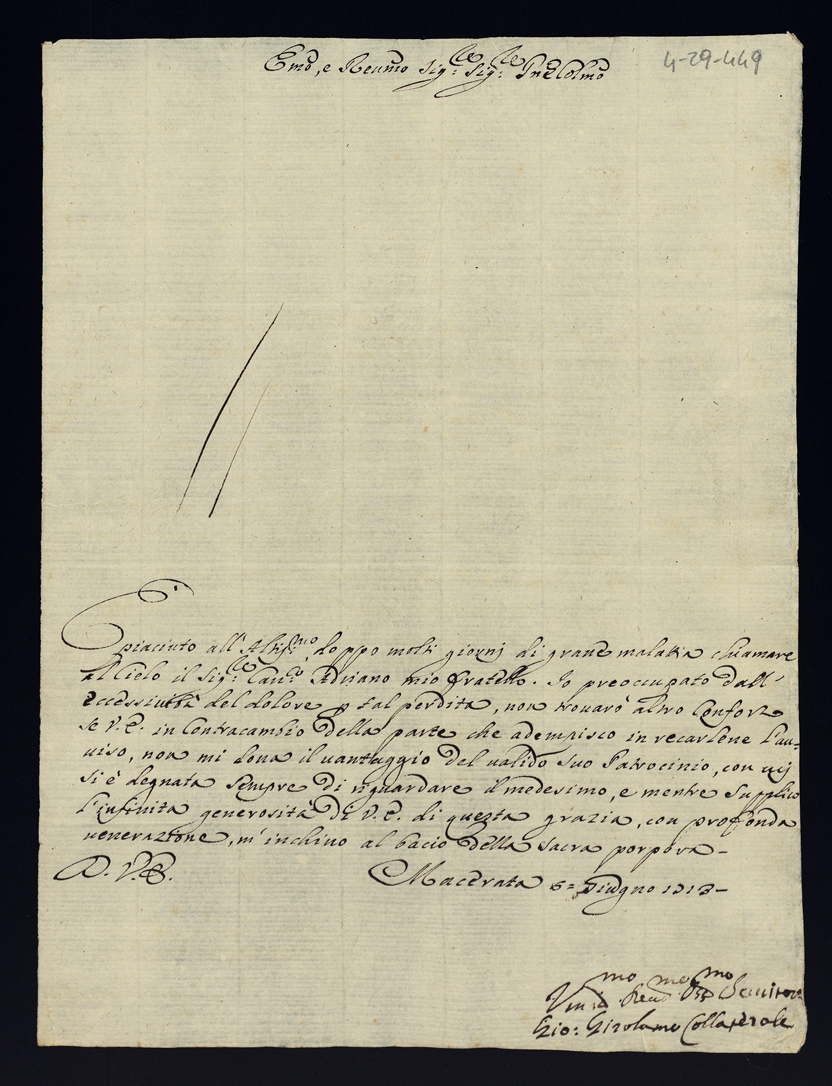 4-29-449
Emo, e Reumo Sig:re Sig:re Prne Colmo
È piaciuto all'Altiss:mo doppo molti giorni di grave malatia chiamare
al Cielo il Sig:re Can:co Adriano mio fratello. Io preoccupato dall'
eccessiuità del dolore p tal perdita, non trouarò altro Conforto
se V.E. in Contracambio della parte che adempisco in recarlene l'au-
uiso, non mi dona il uantaggio del ualido suo Patrocinio, con cuj
si è degnata sempre di riguardare il medesimo, e mentre supplico
l'infinita generosità di V.E. di questa grazia, con profonda
uenerazione, m'inchino al bacio della sacra porpora-
D. V.E.
Macerata 6= Giugno 1713-
Vm:mo Deuo:mo Obb:mo Seruitore
Gio: Girolamo Collaterale